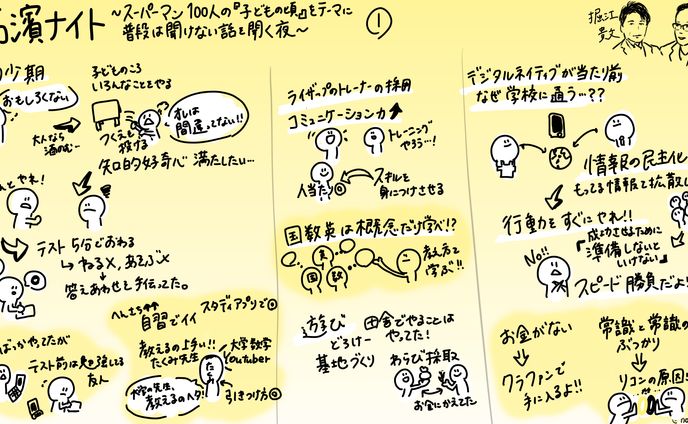 濱ナイト
～スーパーマン100人の『子どもの頃』をテーマに
普段は聞けない話を聞く夜～
①
堀江
貴文
少期
おもしろくない
大人なら
酒のむ…
子どものころ
いろんなことをやる
つくえを
投げる
オレは
間違ってない!!
知的好奇心 満たしたい…
やれ!
テスト 5分でおわる
ねる×、あそぶ×
答えあわせと手伝ってた。
ばっかやってたが
テスト前は
友人
へんさち↑↑
自習でイイ
スタディアプリで◎
教えるの上手い!!
たくみ先生
大学数学
Youtuber
教えるのヘタ!
引きつけ方◎
ライザップのトレーナーの採用
コミュニケーション力↑
トレーニング
やろう…!
人当たり◎
スキルを
身につけさせる
国数英は概念だけ学べ!?
国
英
数
教え方で
学ぶ!!
遊び
田舎でやることは
やってた!
どろけー
基地づくり
わらび採取
お金にかえてた
デジタルネイティブが当たり前
なぜ学校に通う…??
情報の民主化
もってる情報で拡散し
行動をすぐにやれ!!
No!!
『成功させるために
準備しないと
いけない』
スピード勝負だよ!
お金がない
クラファンで
手に入るよ!!
常識と常識の
ぶつかり
リコンの原因!